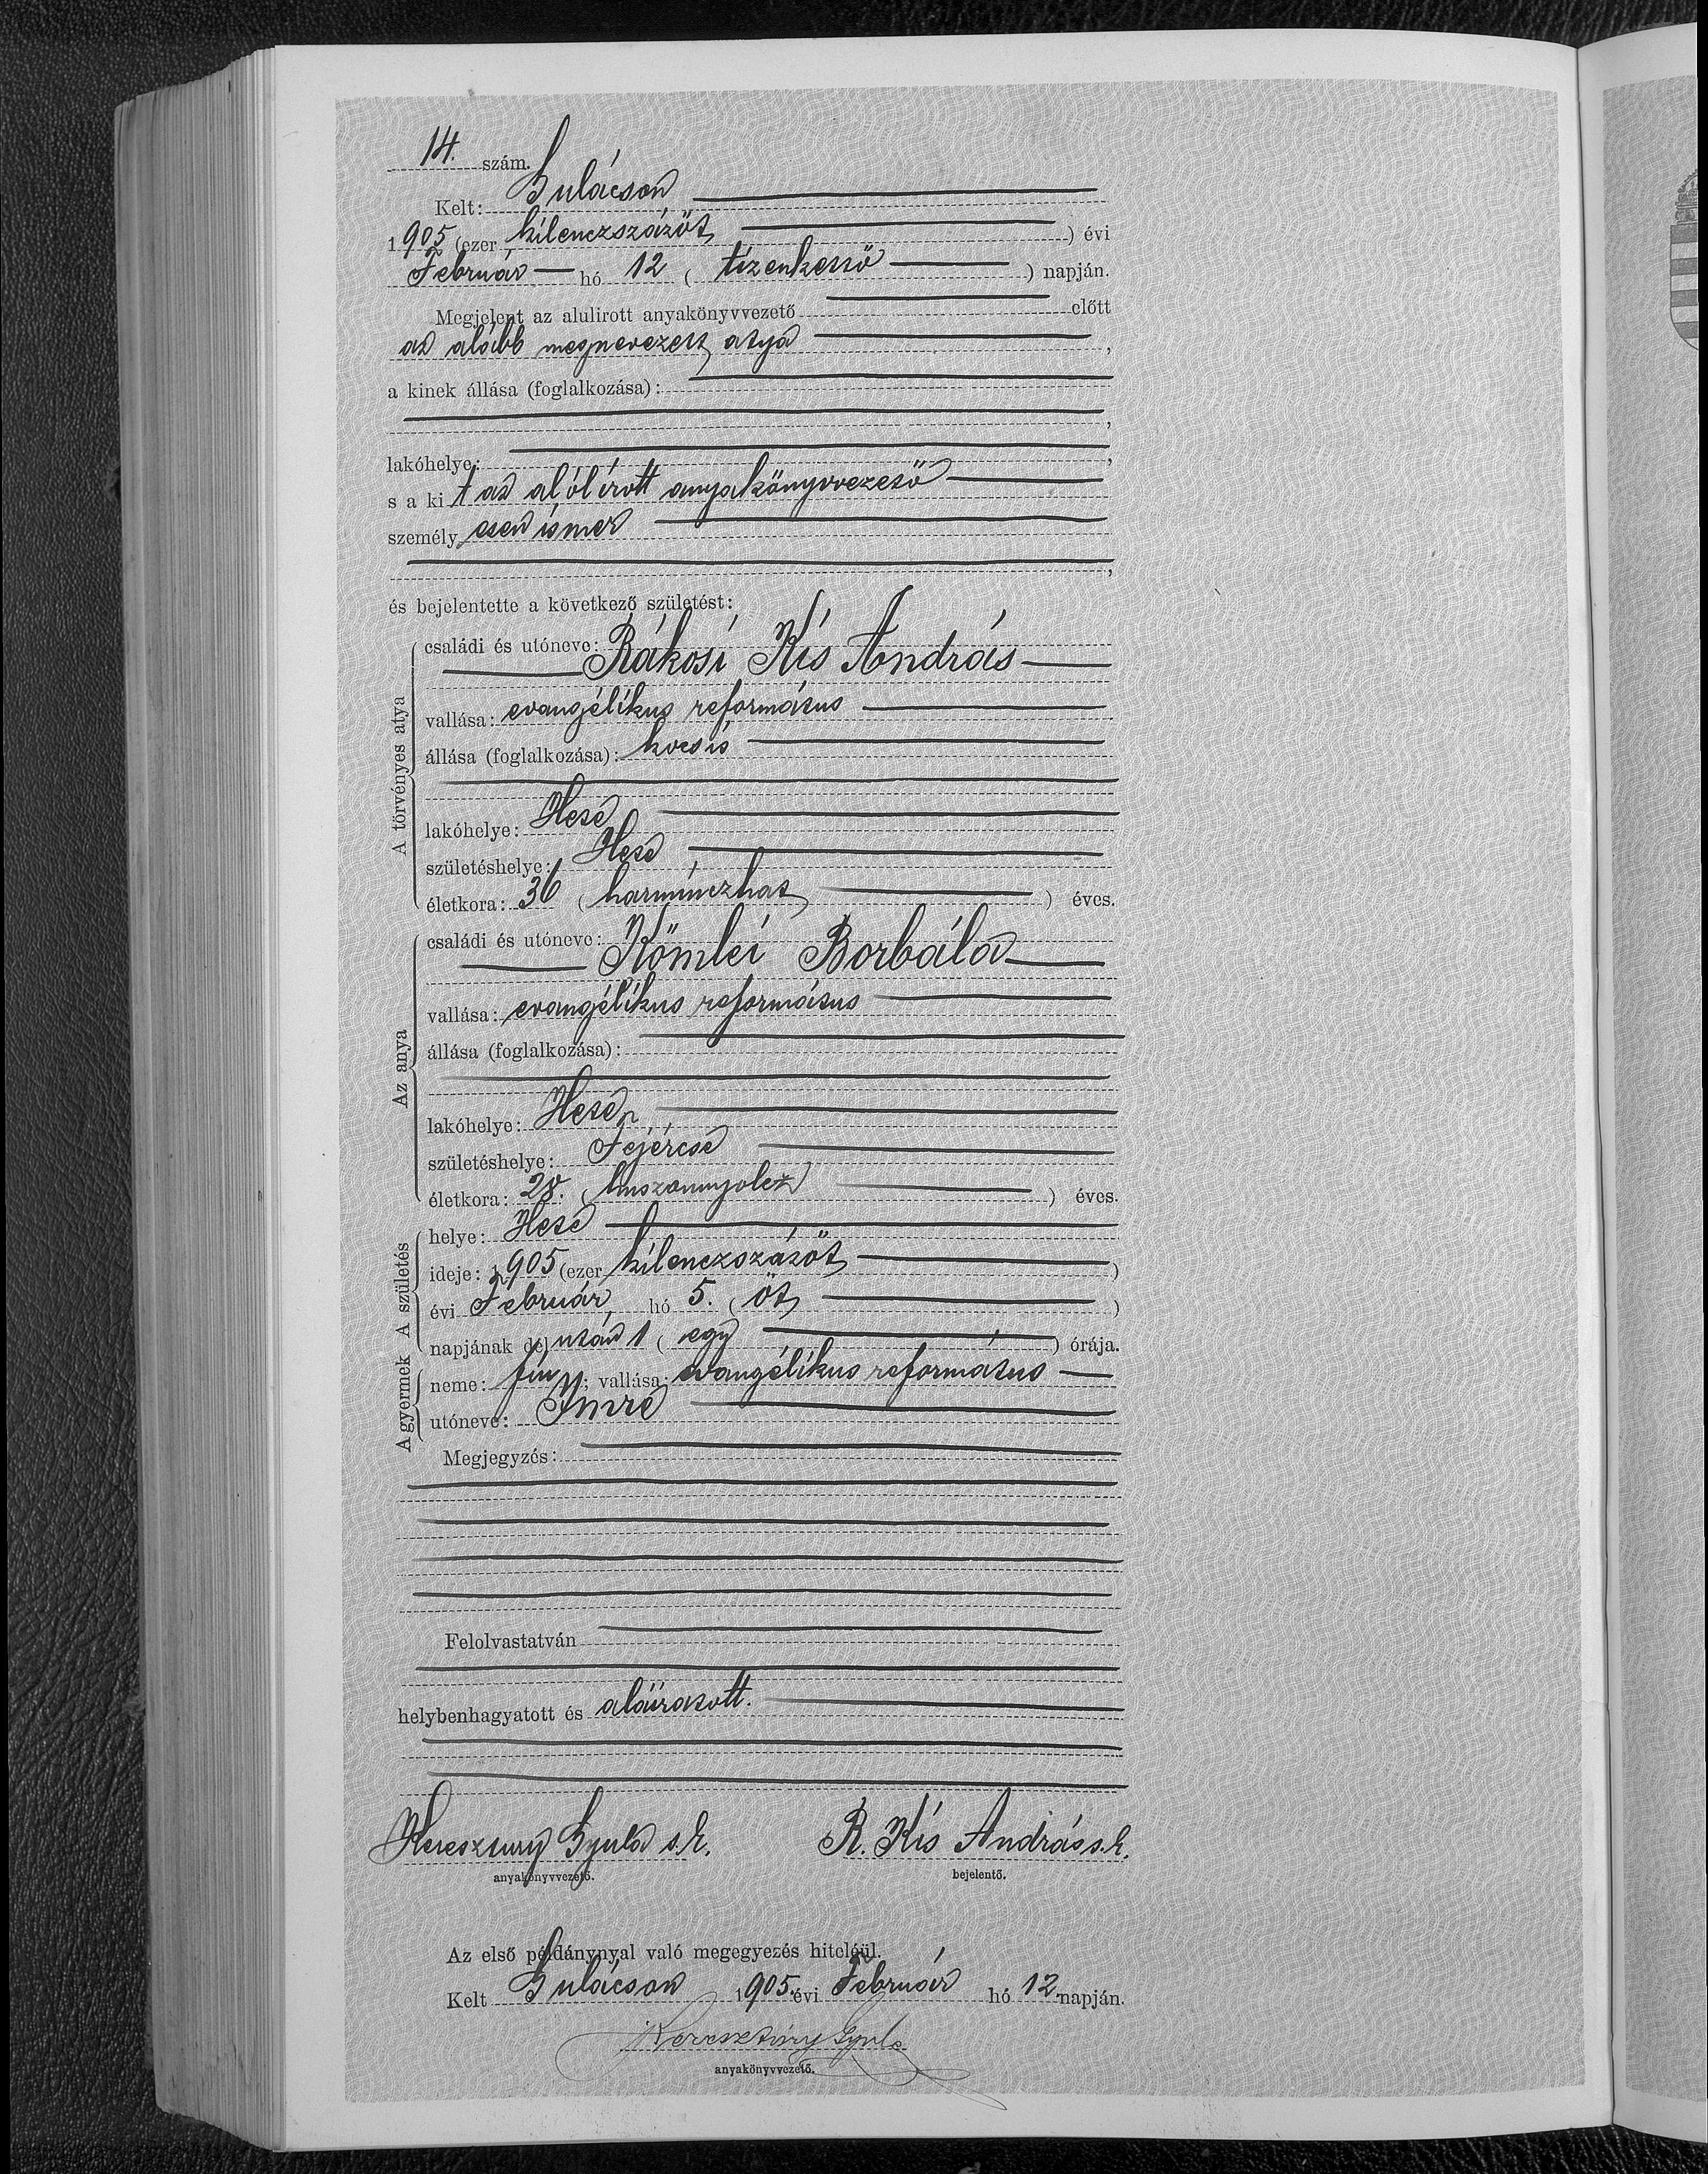 14. szám.
Kelt: Gulácson
1905 (ezer kilenczszázöt) évi
Február hó 12 (tizenkettő) napján.
Megjelent az alulirott anyakönyvvezető előtt
az alább megnevezett atya,
a kinek állása (foglalkozása):
,
lakóhelye: ,
s a kit az alólírott anyakönyvvezető
személyesen ismer
,
és bejelentette a következő születést:
A törvényes atya
családi és utóneve:
Rákosi Kis András
vallása: evangélikus református
állása (foglalkozása): kocsis
lakóhelye: Hete
születéshelye: Hete
életkora: 36 (harminczhat) éves.
Az anya
családi és utóneve:
Kömlei Borbála
vallása: evangélikus református
állása (foglalkozása):
lakóhelye: Hete
születéshelye: Fejércse
életkora: 28. (huszonnyolcz) éves.
A születés
helye: Hete
ideje: 1905 (ezer kilenczszázöt)
évi Február hó 5. (öt)
napjának dél után 1 (egy) órája.
A gyermek
neme: fiu; vallása: evangélikus református
utóneve: Imre
Megjegyzés:
Felolvastatván
helybenhagyatott és aláiratott.
Keresztury Gyula s.k. R. Kis András s.k.
anyakönyvvezető. bejelentő.
Az első példánynyal való megegyezés hiteléül.
Kelt Gulácson 1905. évi Február hó 12. napján.
Keresztúry Gyula
anyakönyvvezető.